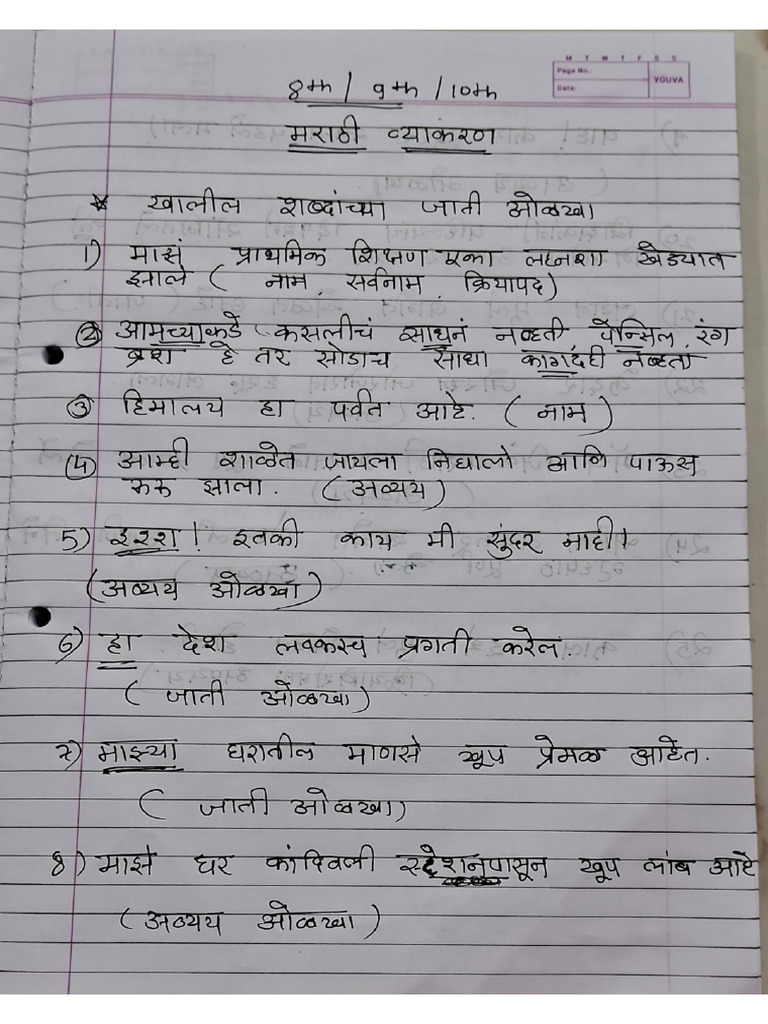 M T W T F S S
Page No.:
Date:
YOUVA
8th / 9th / 10th
मराठी व्याकरण
* खालील शब्दांच्या जाती ओळखा
1) माझं प्राथमिक शिक्षण एका लहानशा खेड्यात
झाले ( नाम, सर्वनाम, क्रियापद)
② आमच्याकडे कसलीचं साधनं नव्हती, पेन्सिल, रंग
ब्रश हे तर सोडाच साधा कागदही नव्हता
③ हिमालय हा पर्वत आहे. ( नाम )
④ आम्ही शाळेत जायला निघालो आणि पाऊस
सुरू झाला. (अव्यय)
5) इश्श! इतकी काय मी सुंदर नाही।
(अव्यय ओळखा)
6) हा देश लवकरच प्रगती करेल.
( जाती ओळखा)
7) माझ्या घरातील माणसे खूप प्रेमळ आहेत.
( जाती ओळखा)
8) माझे घर कांदिवली स्टेशनपासून खूप लांब आहे
(अव्यय ओळखा)